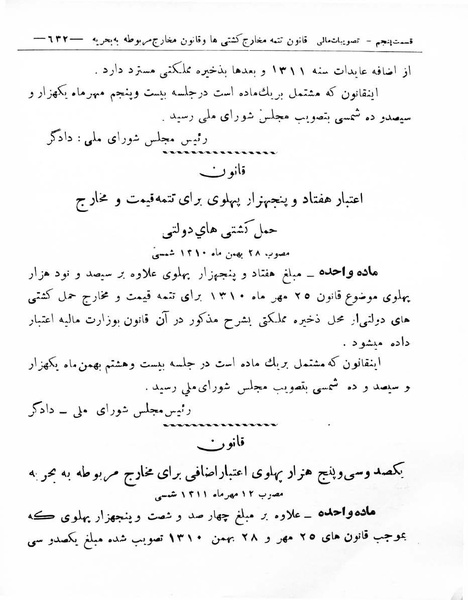 قسمت پنجم - تصویبات مالی قانون تتمه مخارج کشتی ها و قانون مخارج مربوطه به بحریه —۶۳۲—
از اضافه عایدات سنه ۱۳۱۱ و بعدها بذخیره مملکتی مسترد دارد .
اینقانون که مشتمل بر یک ماده است در جلسه بیست و پنجم مهرماه یکهزار و
سیصد و ده شمسی بتصویب مجلس شورای ملی رسید .
رئیس مجلس شورای ملی : دادگر
قانون
اعتبار هفتاد و پنجهزار پهلوی برای تتمه قیمت و مخارج
حمل کشتی های دولتی
مصوب ۲۸ بهمن ماه ۱۳۱۰ شمسی
ماده واحده – مبلغ هفتاد و پنجهزار پهلوی علاوه بر سیصد و نود هزار
پهلوی موضوع قانون ۲۵ مهر ماه ۱۳۱۰ برای تتمه قیمت و مخارج حمل کشتی
های دولتی از محل ذخیره مملکتی بشرح مذکور در آن قانون بوزارت مالیه اعتبار
داده میشود .
اینقانون که مشتمل بر یک ماده است در جلسه بیست و هشتم بهمن ماه یکهزار
و سیصد و ده شمسی بتصویب مجلس شورای ملی رسید .
رئیس مجلس شورای ملی – دادگر
قانون
یکصد و سی و پنج هزار پهلوی اعتبار اضافی برای مخارج مربوطه به بحریه
مصوب ۱۲ مهرماه ۱۳۱۱ شمسی
ماده واحده – علاوه بر مبلغ چهار صد و شصت و پنجهزار پهلوی که
بموجب قانون های ۲۵ مهر و ۲۸ بهمن ۱۳۱۰ تصویب شده مبلغ یکصد و سی